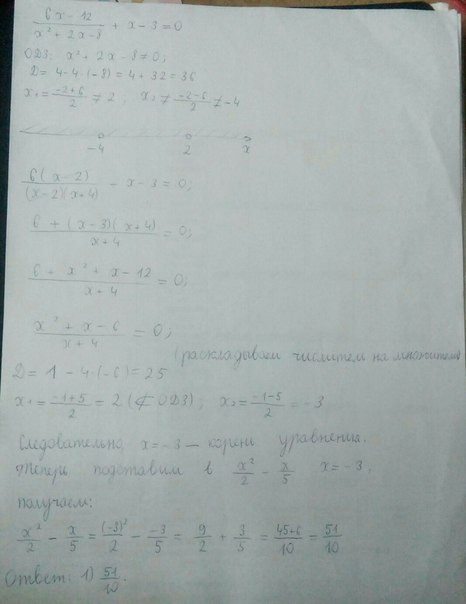 6x-12/x²+2x-8 + x-3=0
ОДЗ: x²+2x-8≠0;
D=4-4·(-8)=4+32=36
x₁=-2+6/2≠2; x₂≠-2-6/2≠-4
-4 2 x
6(x-2)/(x-2)(x+4) + x-3=0;
6+(x-3)(x+4)/x+4=0;
6+x²+x-12/x+4=0;
x²+x-6/x+4=0;
(раскладываем числитель на множители)
D=1-4·(-6)=25
x₁=-1+5/2=2(⊄ОДЗ); x₂=-1-5/2=-3
Следовательно, x=-3 – корень уравнения.
Теперь подставим в x²/2 - x/5 x=-3.
получаем:
x²/2 - x/5 = (-3)²/2 - -3/5 = 9/2 + 3/5 = 45+6/10 = 51/10
Ответ: 1) 51/10.